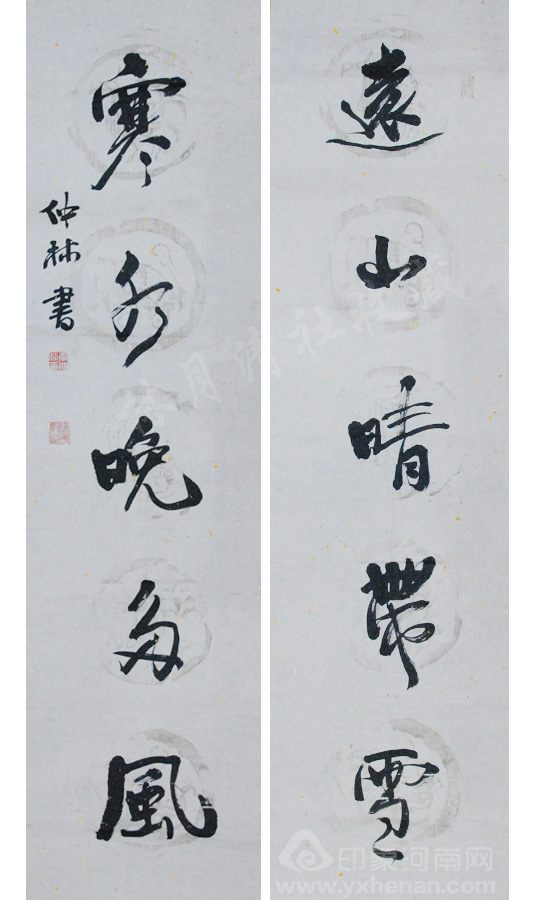 遠山晴帶雪
寒水晚多風
仲林書
印象河南网
www.yxhenan.com